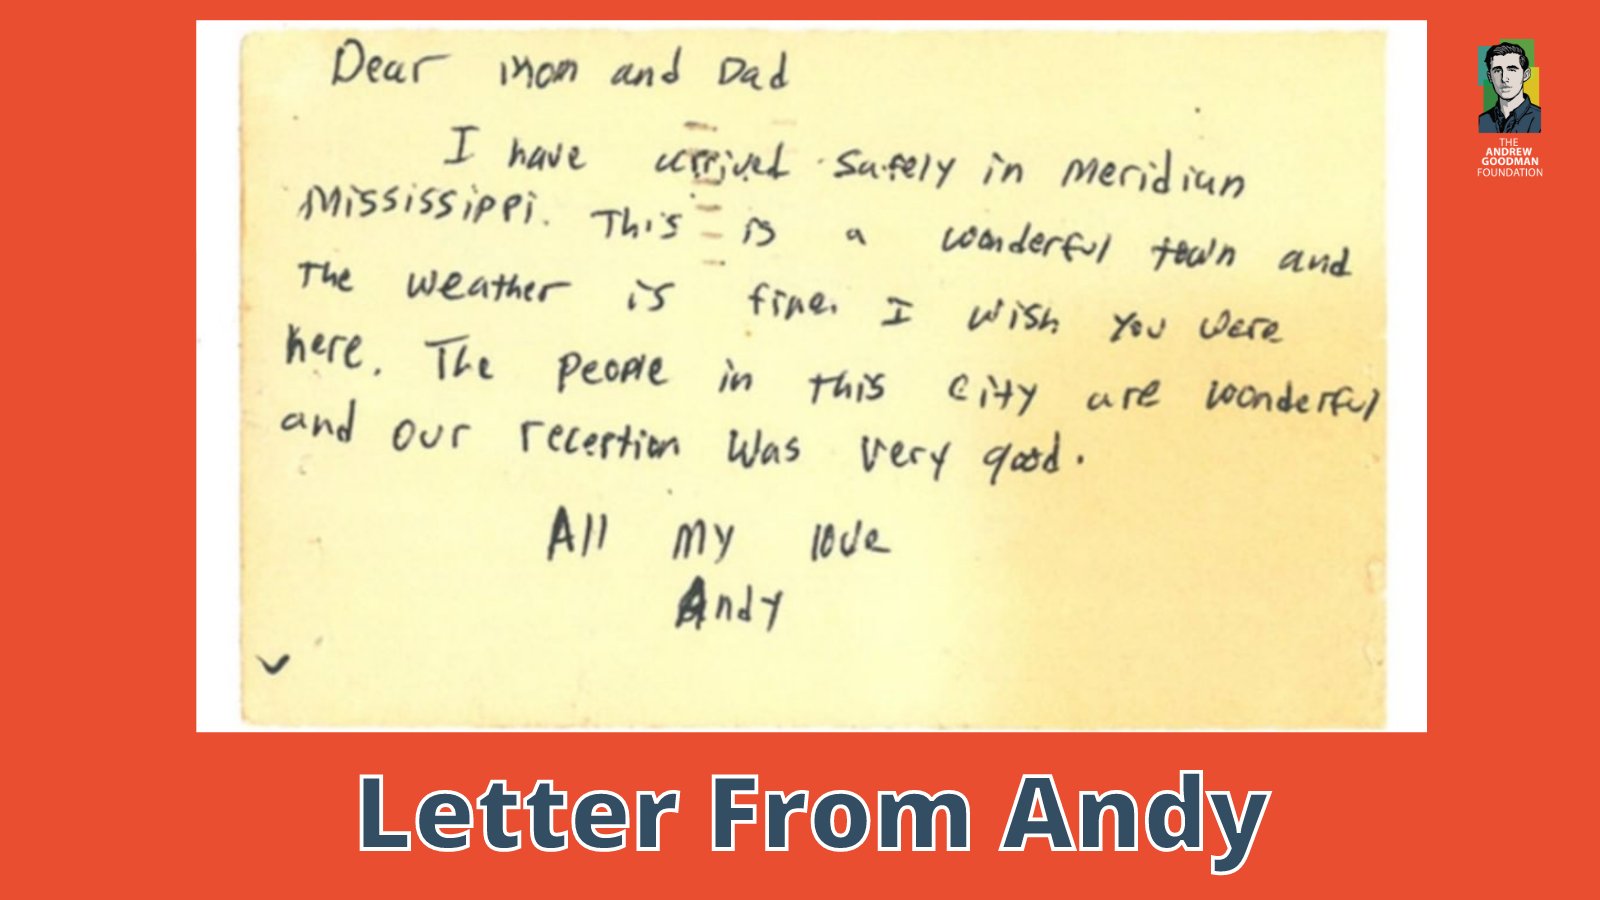 Dear Mom and Dad
I have arrived safely in Meridian
Mississippi. This is a wonderful town and
the weather is fine. I wish you were
here. The people in this city are wonderful
and our reception was very good.
All my love
Andy
THE
ANDREW
GOODMAN
FOUNDATION
Letter From Andy